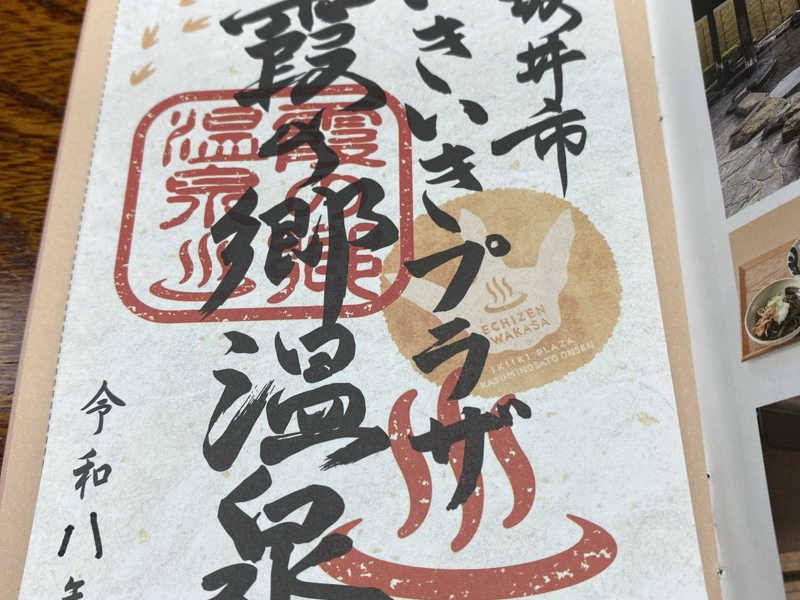 坂井市
いきいきプラザ
霞の郷温泉
霞の郷
温泉
ECHIZEN
WAKASA
IKIIKI PLAZA
KASUMINOSATO ONSEN
令和八年